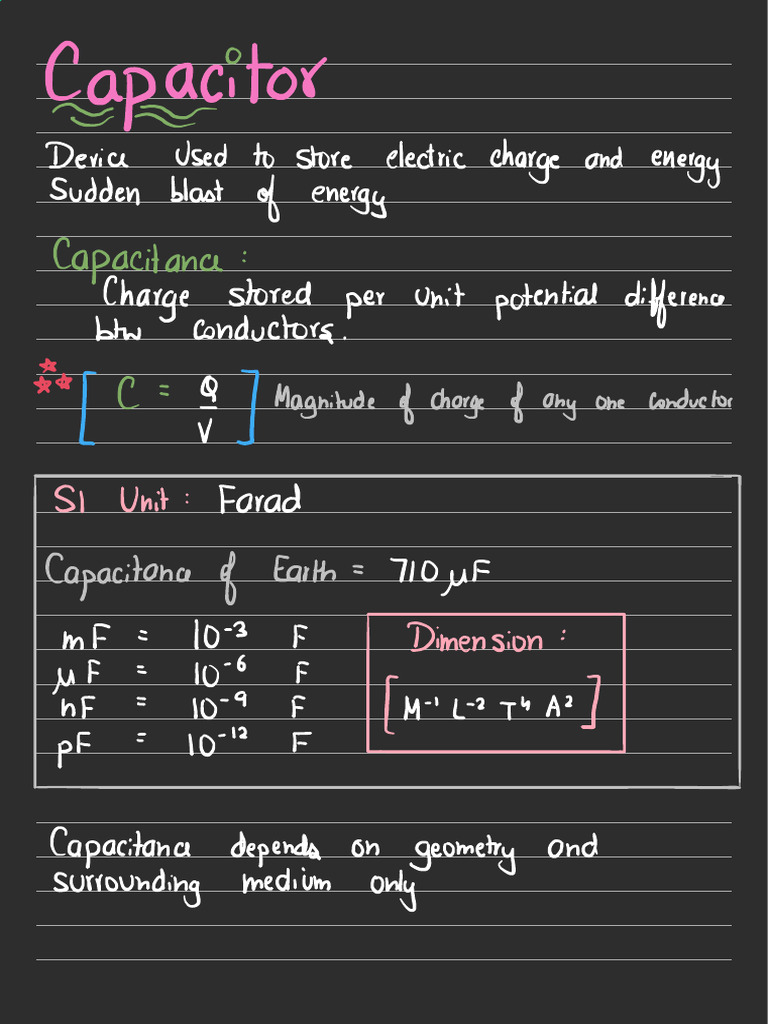 Capacitor
Device Used to store electric charge and energy
Sudden blast of energy
Capacitance :
Charge stored per unit potential difference
btw conductors.
[ C = Q/V ] Magnitude of charge of any one conductor
SI Unit : Farad
Capacitance of Earth = 710 μF
mF = 10⁻³ F
μF = 10⁻⁶ F
nF = 10⁻⁹ F
pF = 10⁻¹² F
Dimension :
[ M⁻¹ L⁻² T⁴ A² ]
Capacitance depends on geometry and
surrounding medium only